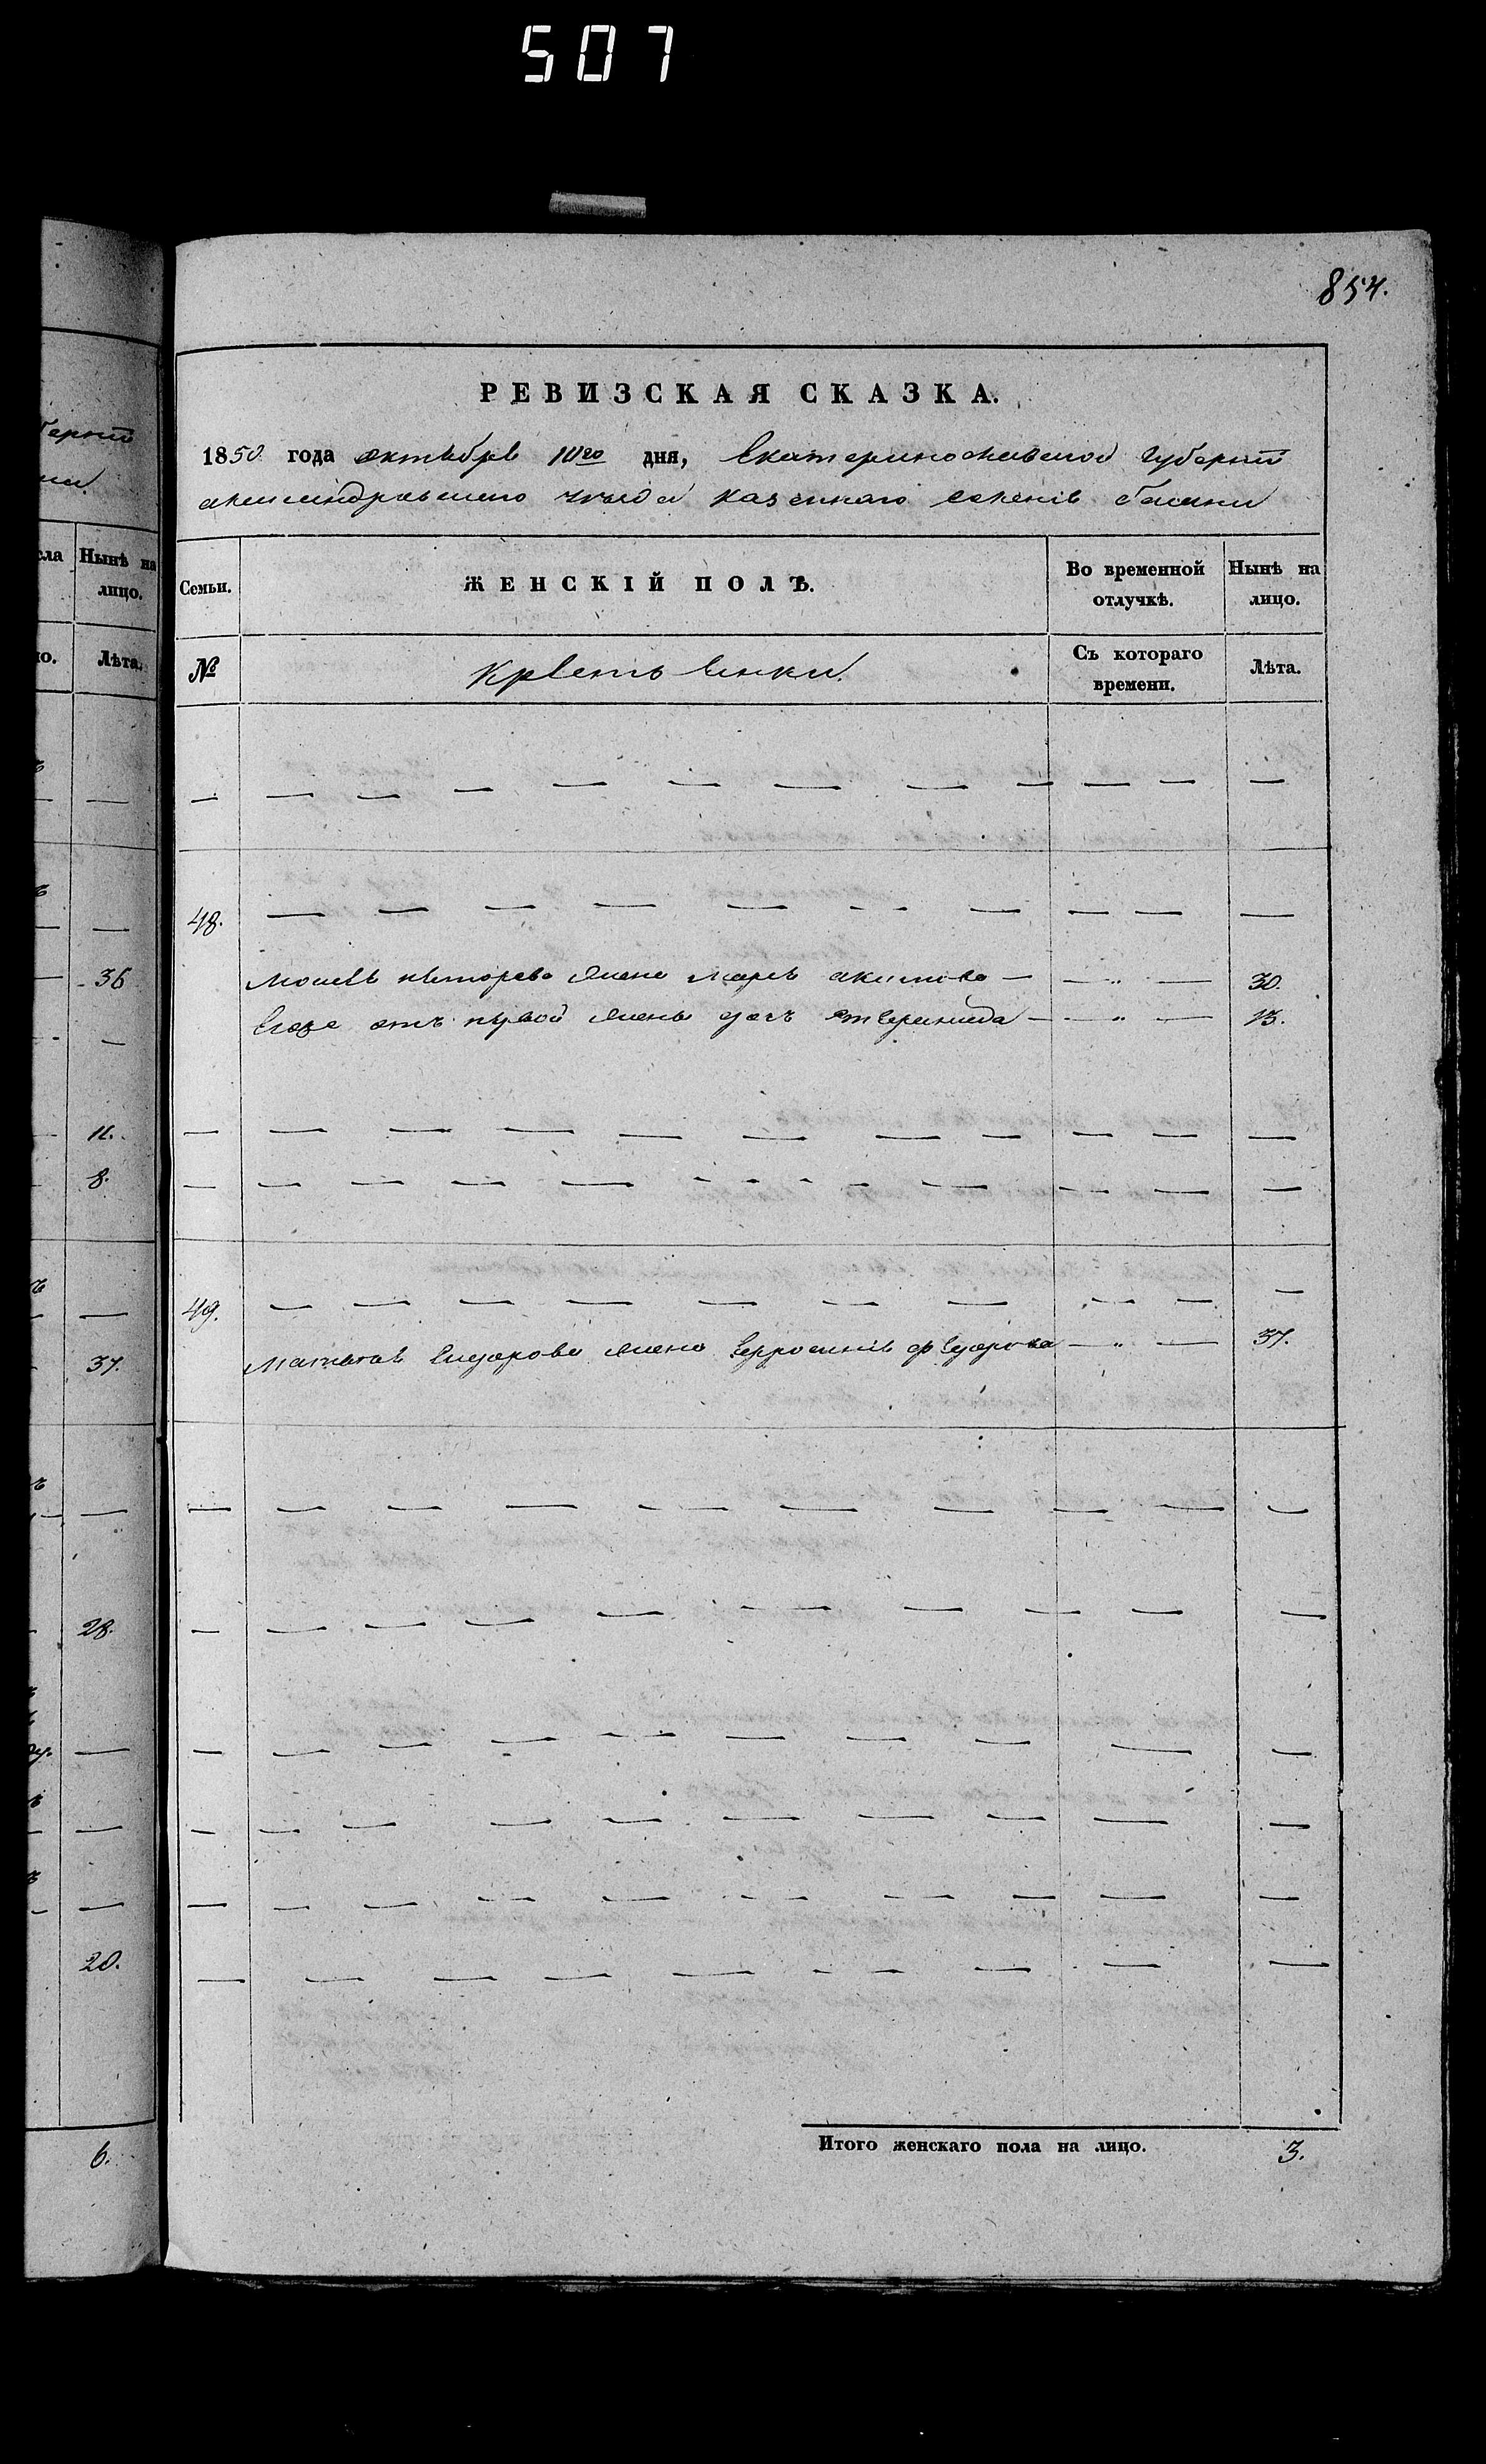 507
854.
РЕВИЗСКАЯ СКАЗКА.
1850 года октября 10го дня, Екатеринославской Губернии
александровского уезда казенного селения
Семьи. ЖЕНСКІЙ ПОЛЪ. Во временной отлучкѣ. Нынѣ на лицо.
№ Съ котораго времени. Лѣта.
48.
Моисея жена Марья акимова — — „ — 30.
его же отъ первой жены дочь — — „ — 13.
49.
Матвея Сидорова жена Ефросиния Федорова — „ — 37.
Итого женскаго пола на лицо. 3.
сла Нынѣ на лицо.
Лѣта.
36
11.
8.
37.
28.
20.
6.